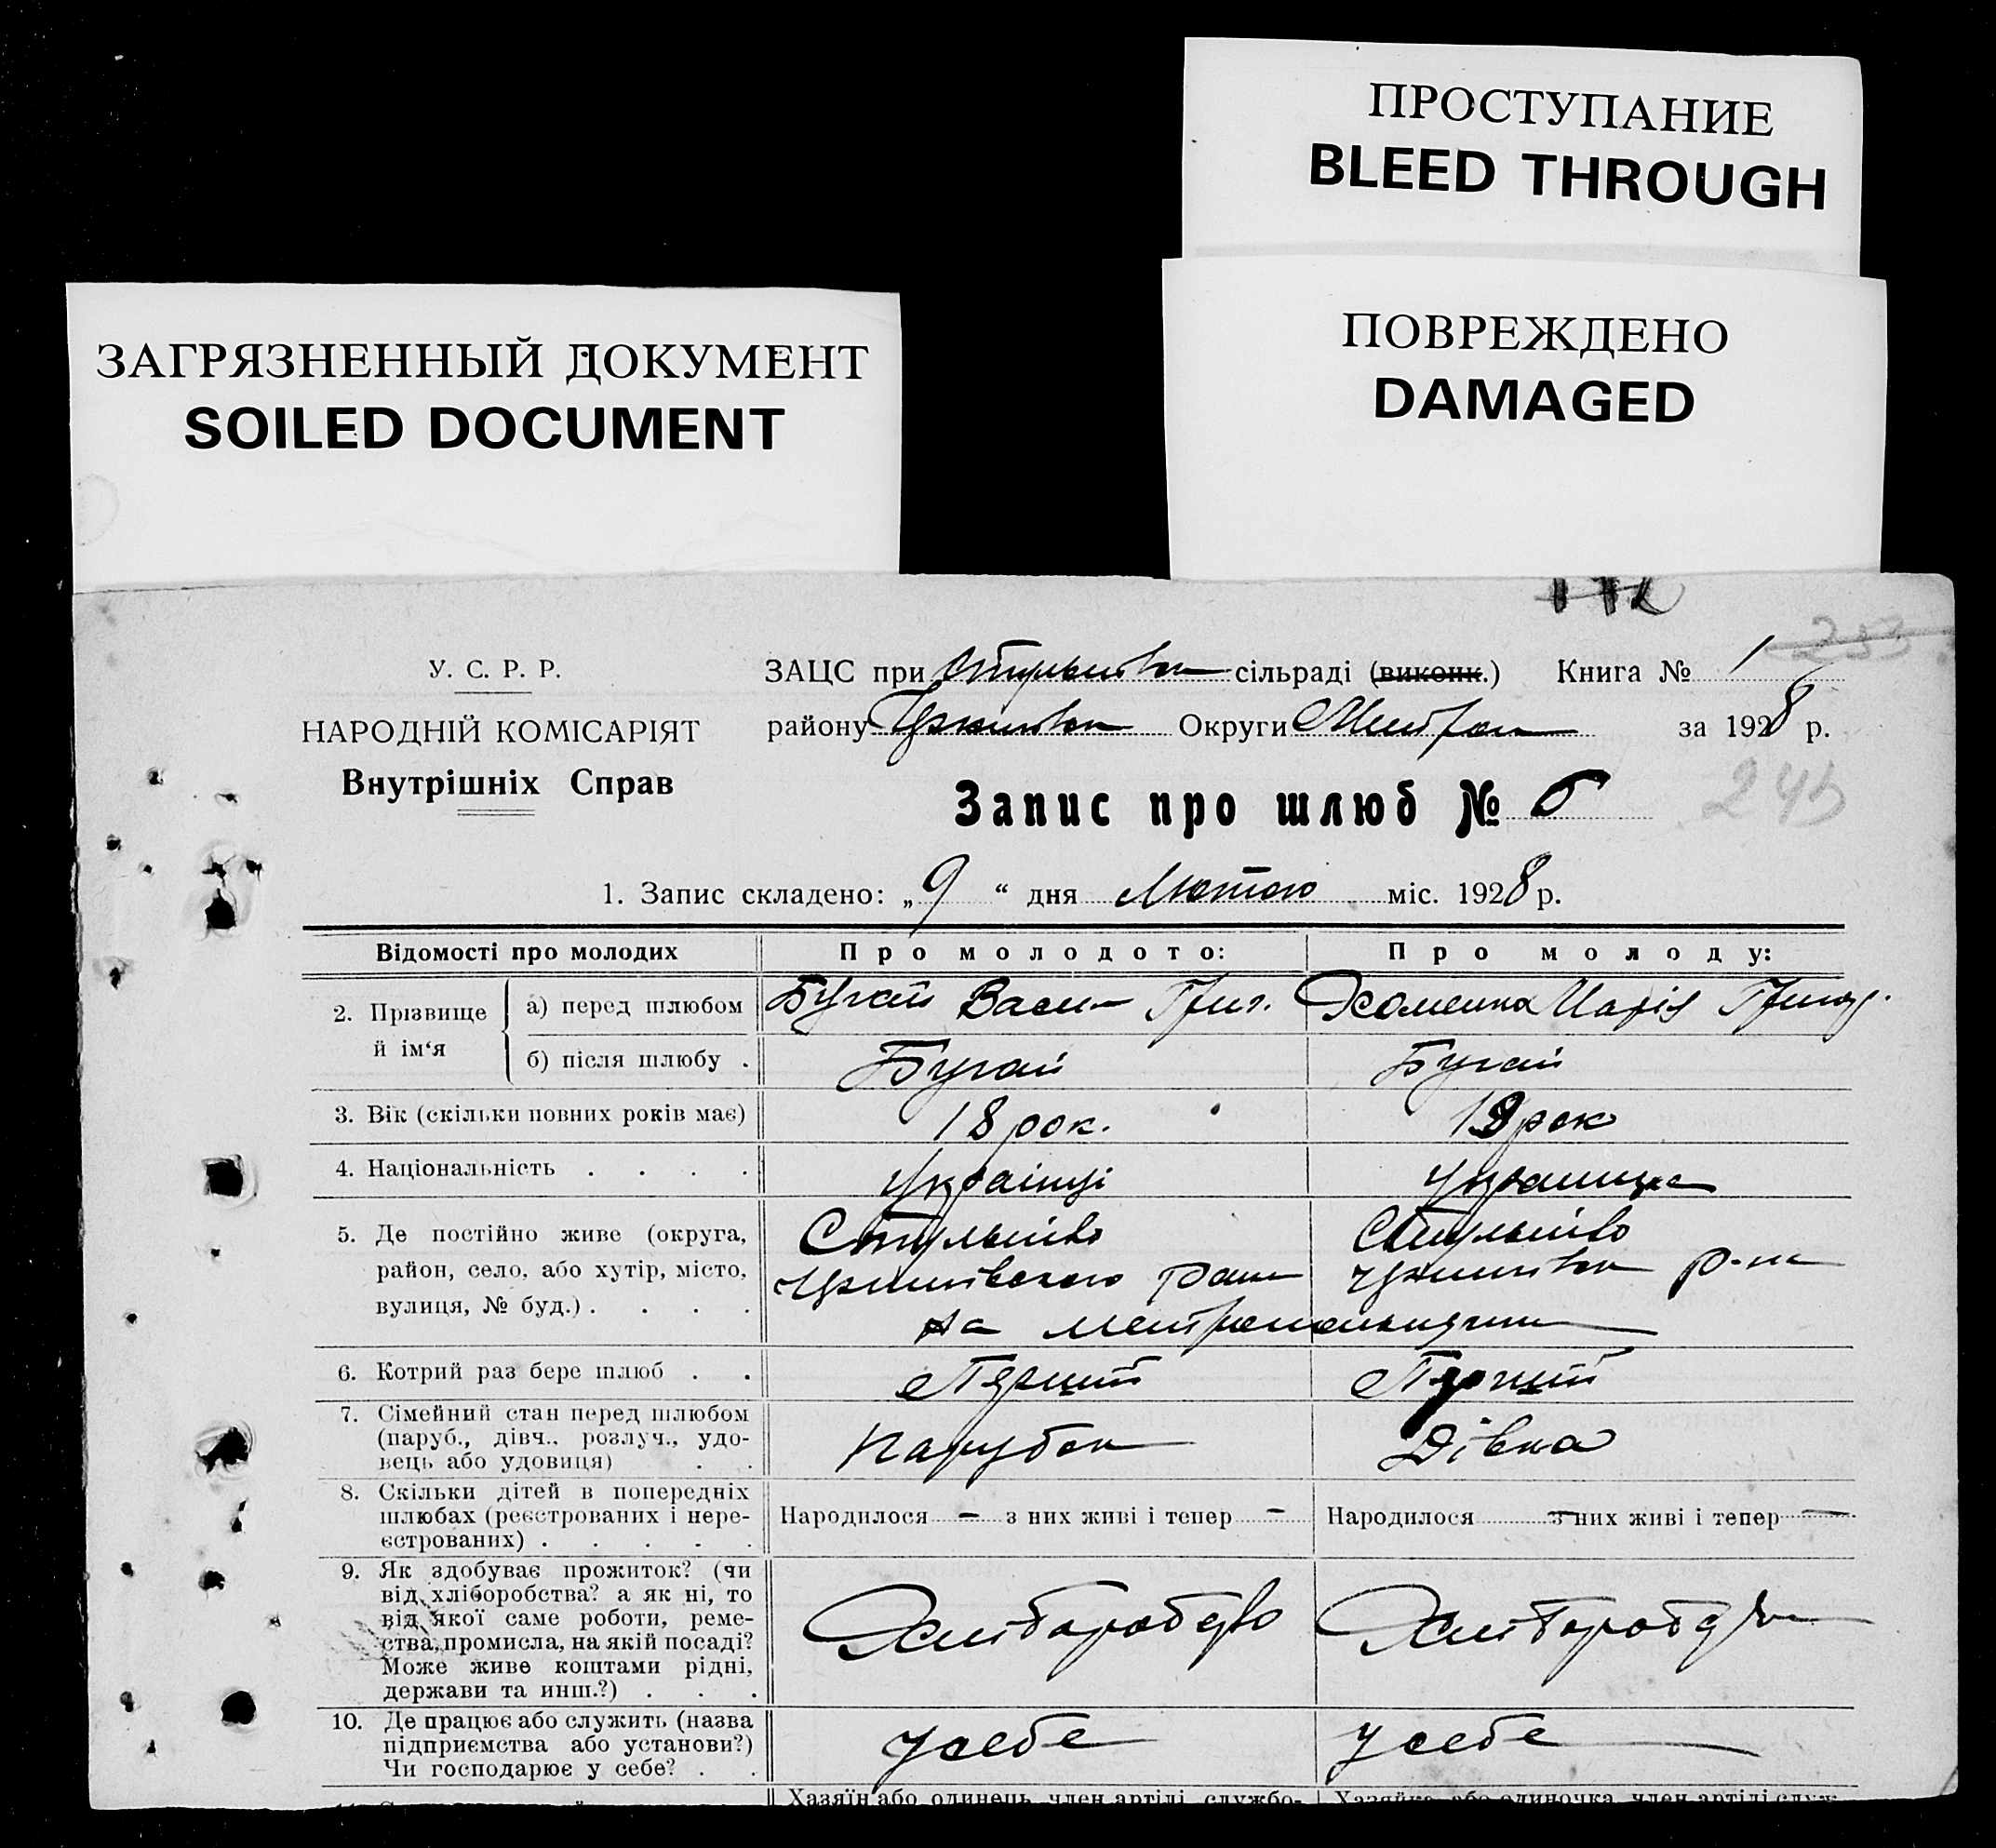 ПРОСТУПАНИЕ
BLEED THROUGH
ЗАГРЯЗНЕННЫЙ ДОКУМЕНТ
SOILED DOCUMENT
ПОВРЕЖДЕНО
DAMAGED
У. С. Р. Р.
НАРОДНІЙ КОМІСАРІЯТ
Внутрішніх Справ
ЗАЦС при сільраді (виконк.) Книга № 1
району Округи за 1928 р.
Запис про шлюб № 6
245
1. Запис складено: „ 9 “ дня Лютого міс. 1928 р.
Відомості про молодих
Про молодого:
Про молоду:
2. Прізвище й ім‘я
а) перед шлюбом
Бугай Васи Григ.
Хоменка Марія
б) після шлюбу .
Бугай
Бугай
3. Вік (скільки повних років має)
18 рок.
19 рок
4. Національність . . . .
Українці
5. Де постійно живе (округа,
район, село, або хутір, місто,
вулиця, № буд.) . . . .
6. Котрий раз бере шлюб . .
Перший
Перший
7. Сімейний стан перед шлюбом
(паруб., дівч., розлуч., удо-
вець або удовиця) . .
Парубок
Дівка
8. Скільки дітей в попередніх
шлюбах (реєстрованих і нере-
єстрованих) . . . . .
Народилося — з них живі і тепер —
Народилося — з них живі і тепер —
9. Як здобуває прожиток? (чи
від хліборобства? а як ні, то
від якої саме роботи, реме-
ства, промисла, на якій посаді?
Може живе коштами рідні,
держави та инш.?) . . .
10. Де працює або служить (назва
підприємства або установи?)
Чи господарює у себе? . .
У себе
У себе
Хазяїн або одинець, член артілі, службо-
Хазяйка або одиночка, член артілі служ-